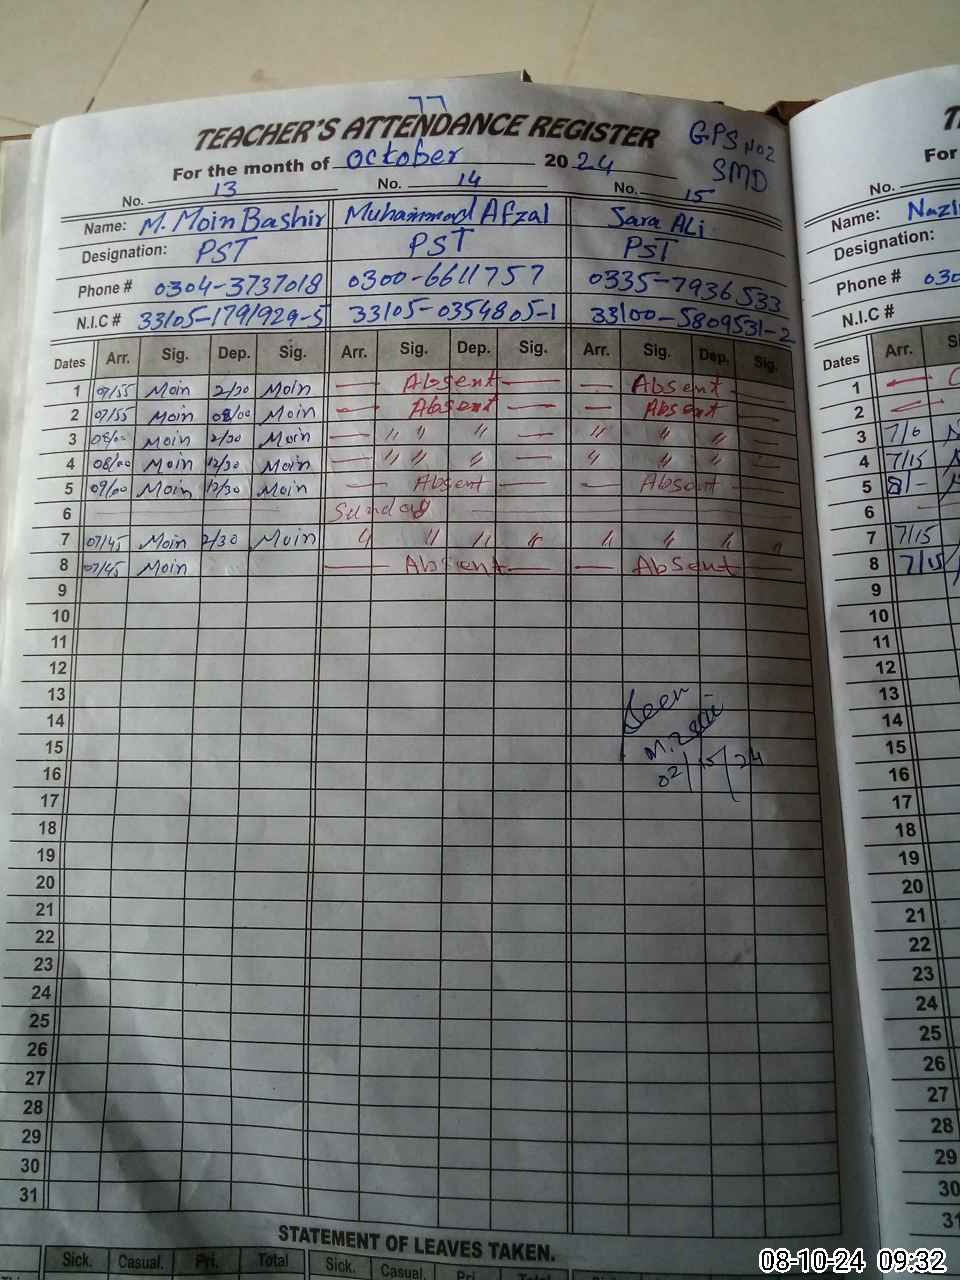 77
TEACHER'S ATTENDANCE REGISTER GPS No2
For the month of October 2024 SMD
No. 13 No. 14 No. 15
Name: M. Moin Bashir Muhammad Afzal Sara ALi
Designation: PST PST PST
Phone # 0304-3737018 0300-6611757 0335-7936533
N.I.C # 33105-1791929-5 33105-0354805-1 33100-5809531-2
Dates Arr. Sig. Dep. Sig. Arr. Sig. Dep. Sig. Arr. Sig. Dep. Sig.
1 07/55 Moin 2/30 Moin — Absent — — Absent —
2 07/55 Moin 08/00 Moin — Absent — — Absent —
3 08/00 Moin 2/30 Moin — " " " — " " " —
4 08/00 Moin 12/30 Moin — " " " — " " " —
5 09/00 Moin 12/30 Moin — Absent — — Absent —
6 Sunday
7 07/45 Moin 2/30 Moin " " " " " " " "
8 07/45 Moin — Absent — — Absent —
9
10
11
12
13
14
15
16
17
18
19
20
21
22
23
24
25
26
27
28
29
30
31
Seen
02/15/24
STATEMENT OF LEAVES TAKEN.
Sick. Casual. Pri. Total Sick. Casual. Pri.
For
No.
Name:
Designation:
Phone #
N.I.C #
Dates Arr.
1
2
3 7/
4 7/15
5 8/-
6
7 7/15
8 7/15
9
10
11
12
13
14
15
16
17
18
19
20
21
22
23
24
25
26
27
28
29
30
31
08-10-24 09:32